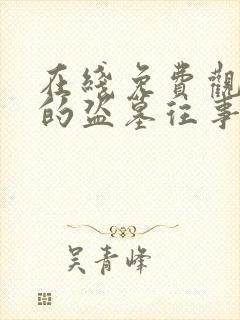 在綫免費觀
的盜墓往事
吳青峰